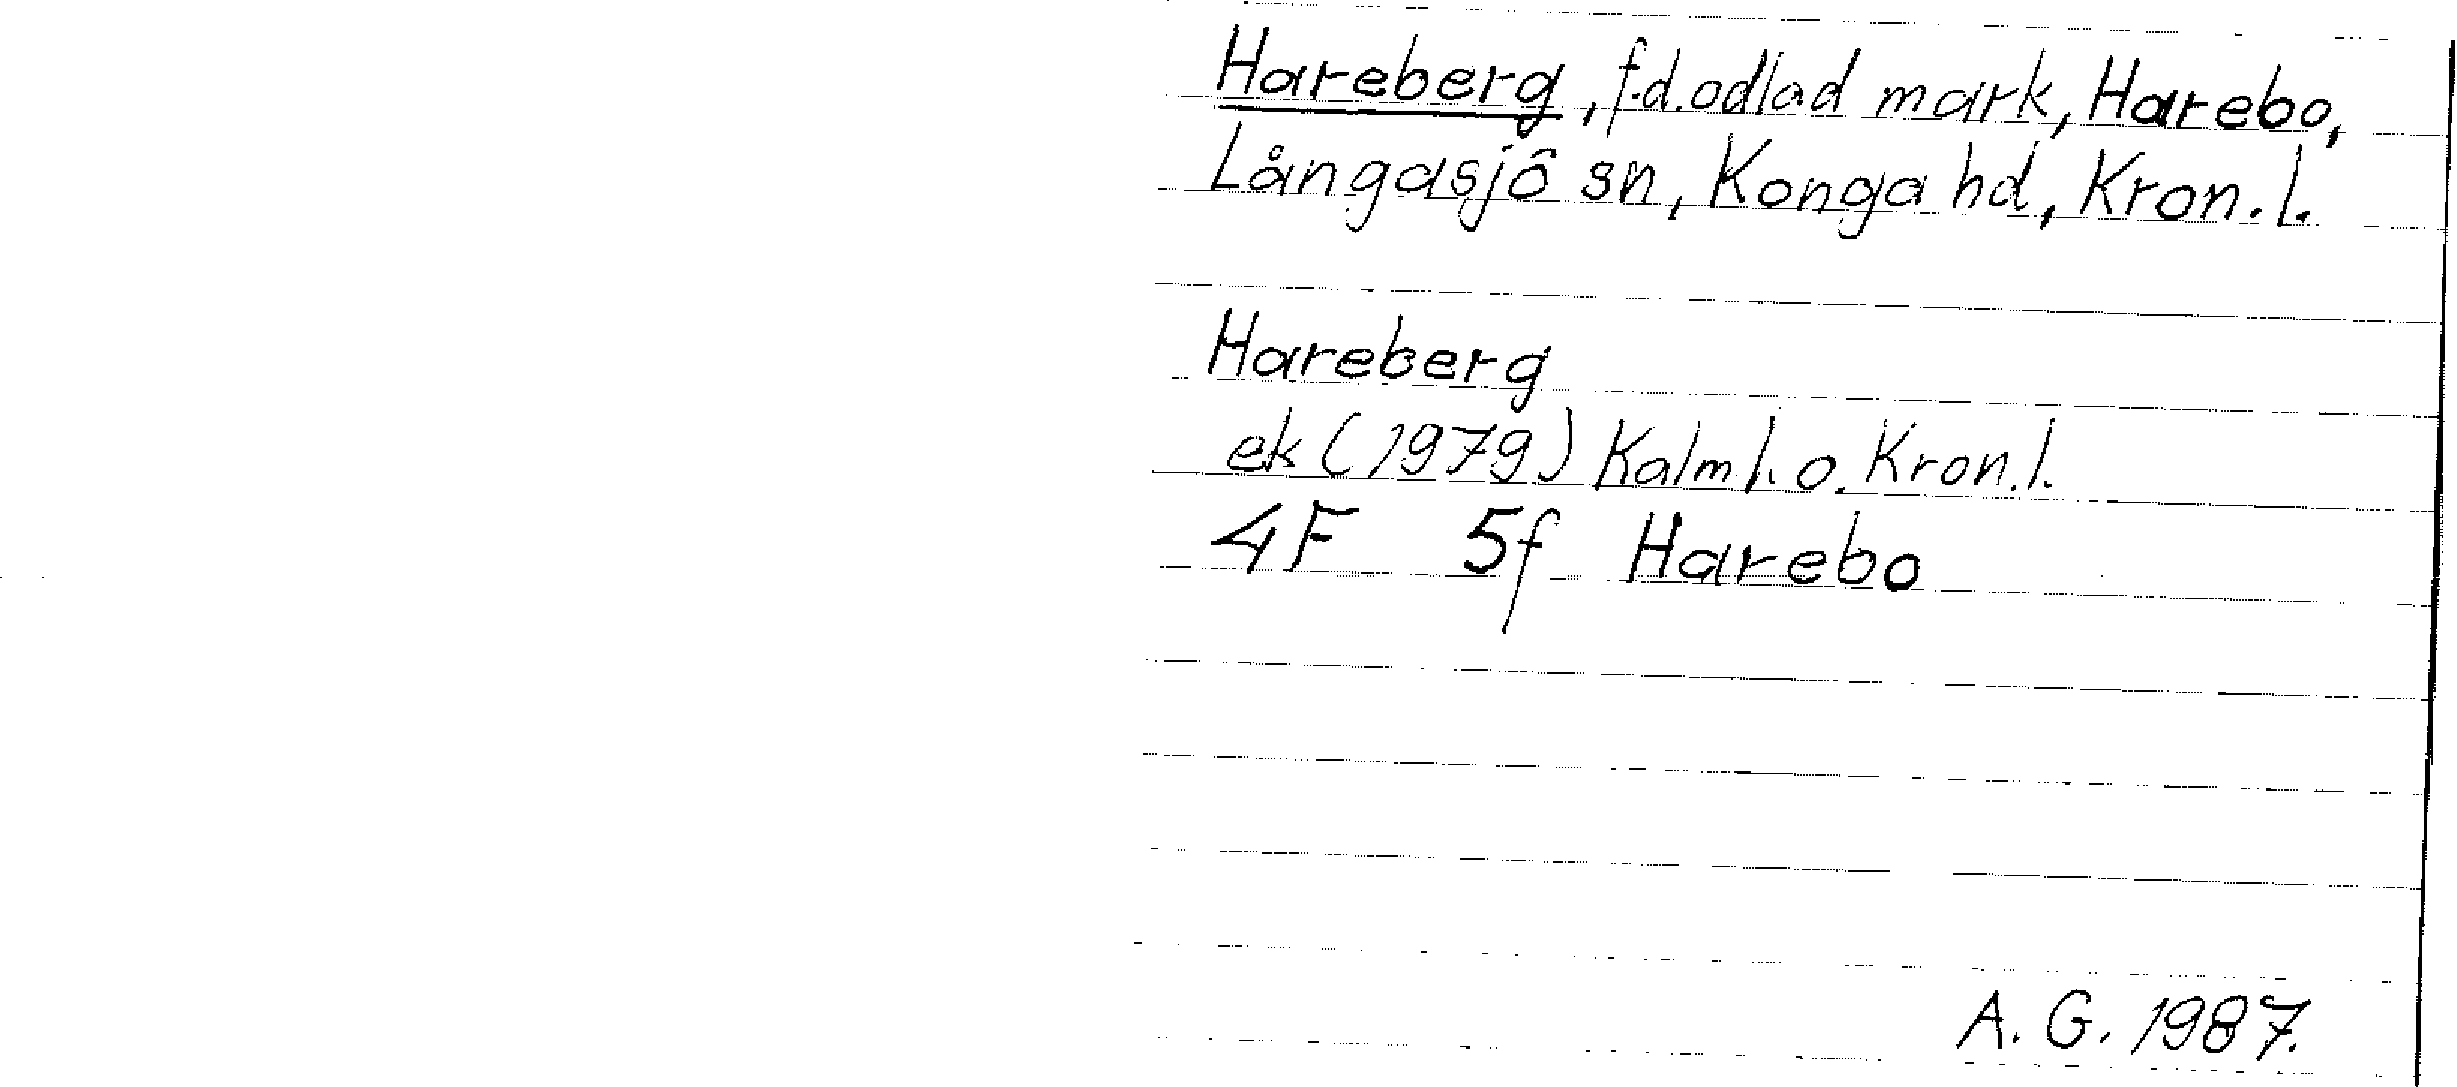 Hareberg, f.d. odlad mark, Harebo,
Långasjö sn, Konga hd, Kron. l.
Hareberg
ek (1979) Kalm l. o. Kron. l.
4F 5f Harebo
A. G. 1987.